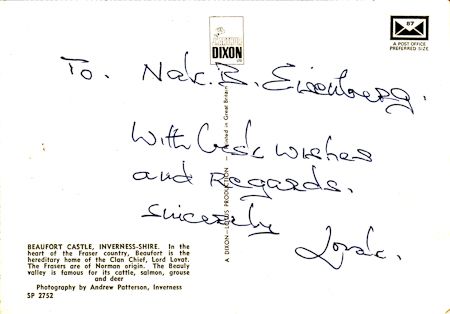 DIXON
87
A POST OFFICE
PREFERRED SIZE
To. Nat. B. Eisenberg.
With best wishes
and Regards.
Sincerely
Lovat.
A DIXON-LOTUS PRODUCTION — Printed in Great Britain
BEAUFORT CASTLE, INVERNESS-SHIRE. In the
heart of the Fraser country, Beaufort is the
hereditary home of the Clan Chief, Lord Lovat.
The Frasers are of Norman origin. The Beauly
valley is famous for its cattle, salmon, grouse
and deer
Photography by Andrew Patterson, Inverness
SP 2752